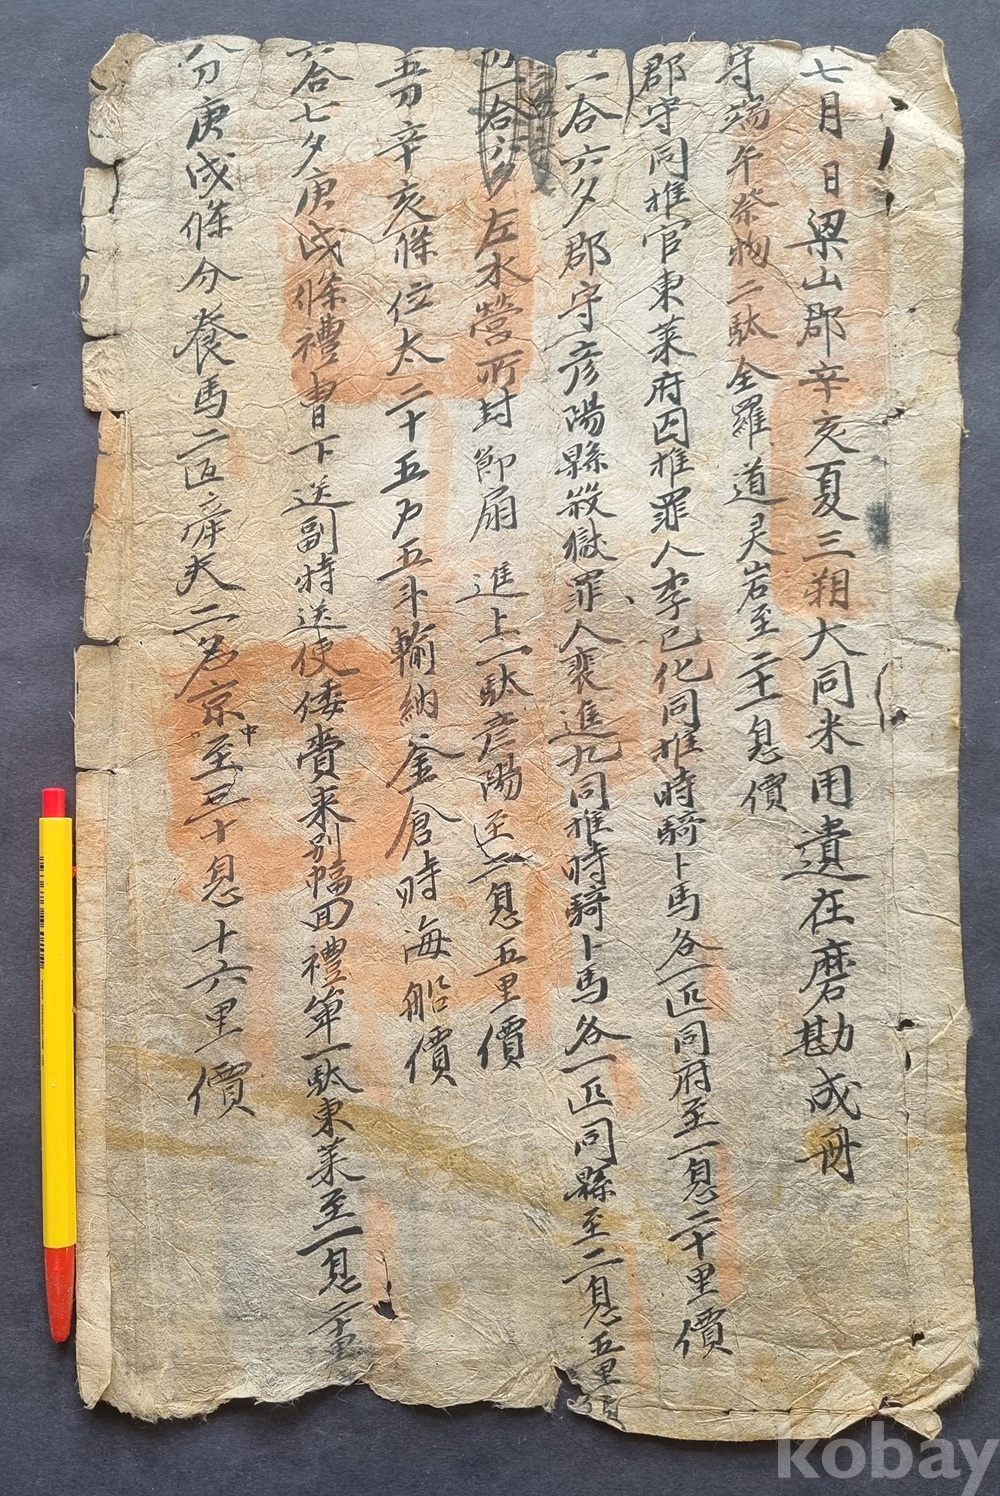 七月 日梁山郡辛亥夏三朔大同米用遺在磨勘成冊
守端午祭物二駄全羅道灵岩至二十一息價
郡守同推官東莱府囚推罪人李已化同推時騎卜馬各一匹同府至一息二十里價
一合六夕郡守彦陽縣殺獄罪人裵進九同推時騎卜馬各一匹同縣至二息五里
一合六夕左水營所封節扇 進上一駄彦陽至二息五里價
辛亥條位太二十五石五斗輸納釜倉時海船價
合七夕庚戌條禮曹下送副特送使倭賫来別幅回禮第一駄東莱至一息二十里
分庚戌條分養馬二匹牽夫二名京中至三十息十六里價
kobay